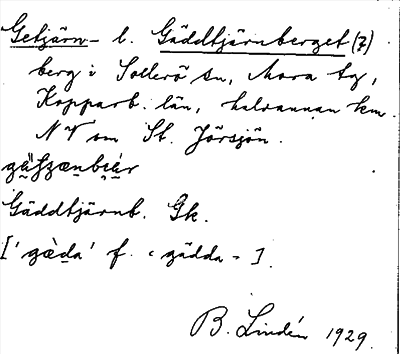 Getjärn- l. Gäddtjärnberget (?)
berg i Sollerö sn, Mora tg,
Kopparb. län, halvannan km.
NV om St. Jörsjön.
Gäddtjärnb. Gk.
['gæ̀da' f. < gädda - ].
B. Lindén 1929.